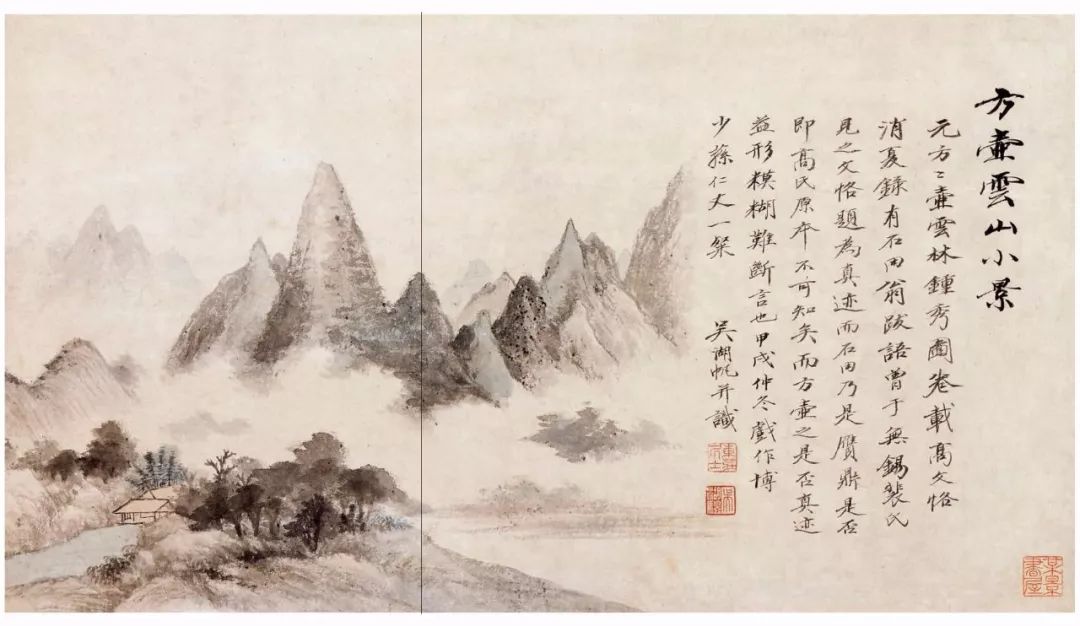 方壺雲山小景
元方〻壺雲林鍾秀圖卷載髙文恪
消夏錄有石田翁跋語曾于無錫裴氏
見之文恪題為真迹而石田乃是贋鼎是否
即髙氏原夲不可知矣而方壺之是否真迹
益形糢糊難斷言也甲戌仲冬戲作博
少蓀仁丈一粲 吳湖帆并識
某景書屋